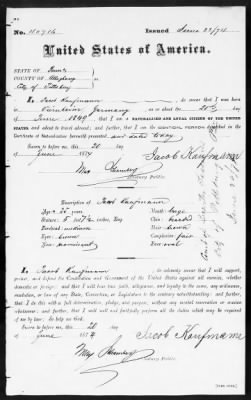 No. 40716 Issued June 23/74
United States of America.
STATE OF Penna
COUNTY OF Allegheny
City of Pittsburg
I, Jacob Kaufmann do swear that I was born
in Germany on or about the 20th day of
June 1849 that I am a NATURALIZED AND LOYAL CITIZEN OF THE
UNITED STATES, and about to travel abroad; and further, that I am the IDENTICAL PERSON described in the
Certificate of Naturalization herewith presented
Sworn to before me, this 20 day
of June 1874
Jacob Kaufmann
Notary Public.
Description of Jacob Kaufmann
Age: 25 years Mouth: large
Stature: 5 feet inches, Eng. Chin:
Forehead: medium Hair: brown
Eyes: brown Complexion: fair
Nose: prominent Face: oval
I, Jacob Kaufmann do solemnly swear that I will support,
protect, and defend the Constitution and Government of the United States against all enemies, whether
domestic or foreign; and that I will bear true faith, allegiance, and loyalty to the same, any ordinance,
resolution, or law of any State, Convention, or Legislature to the contrary notwithstanding; and further,
that I do this with a full determination, pledge, and purpose, without any mental reservation or evasion
whatsoever; and further, that I will well and faithfully perform all the duties which may be required
of me by law: So help me God.
Sworn to before me, this 20 day
of June 1874
Jacob Kaufmann
Notary Public.